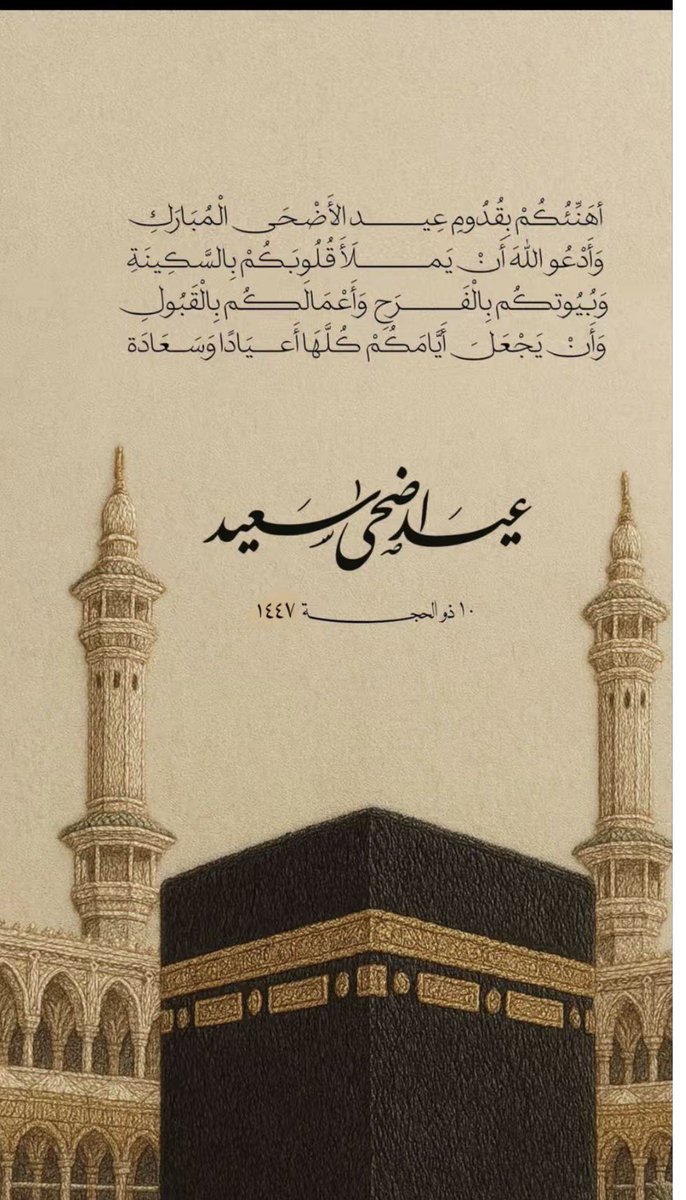 أهَنِّئُكُمْ بِقُدُومِ عِيد الأَضْحَى الْمُبَارَكِ
وَأَدْعُو اللهَ أَنْ يَملَأَ قُلُوبَكُمْ بِالسَّكِينَةِ
وَبُيُوتكُم بِالْفَرَحِ وَأَعْمَالَكُم بِالْقَبُولِ
وَأَنْ يَجْعَلَ أَيَّامَكُمْ كُلَّهَا أَعيَادًا وَسَعَادَة
عيد اضحى سعيد
١٠ ذو الحجة ١٤٤٧